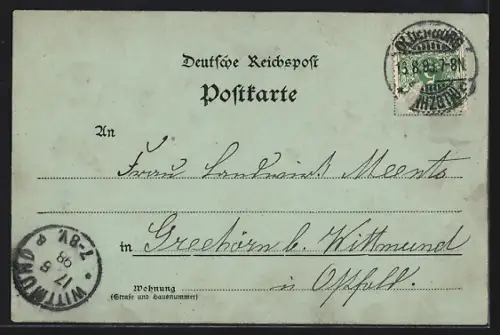 Deutsche Reichspost
Postkarte
OLDENBURG
8.98. 7-8N.
GRHZGTH.
An
Frau Landwirt Meents
in Greehörn b. Wittmund
i. Ostfsld.
Wohnung
(Straße und Hausnummer)
WITTMUND
17 8
98
7-8V.